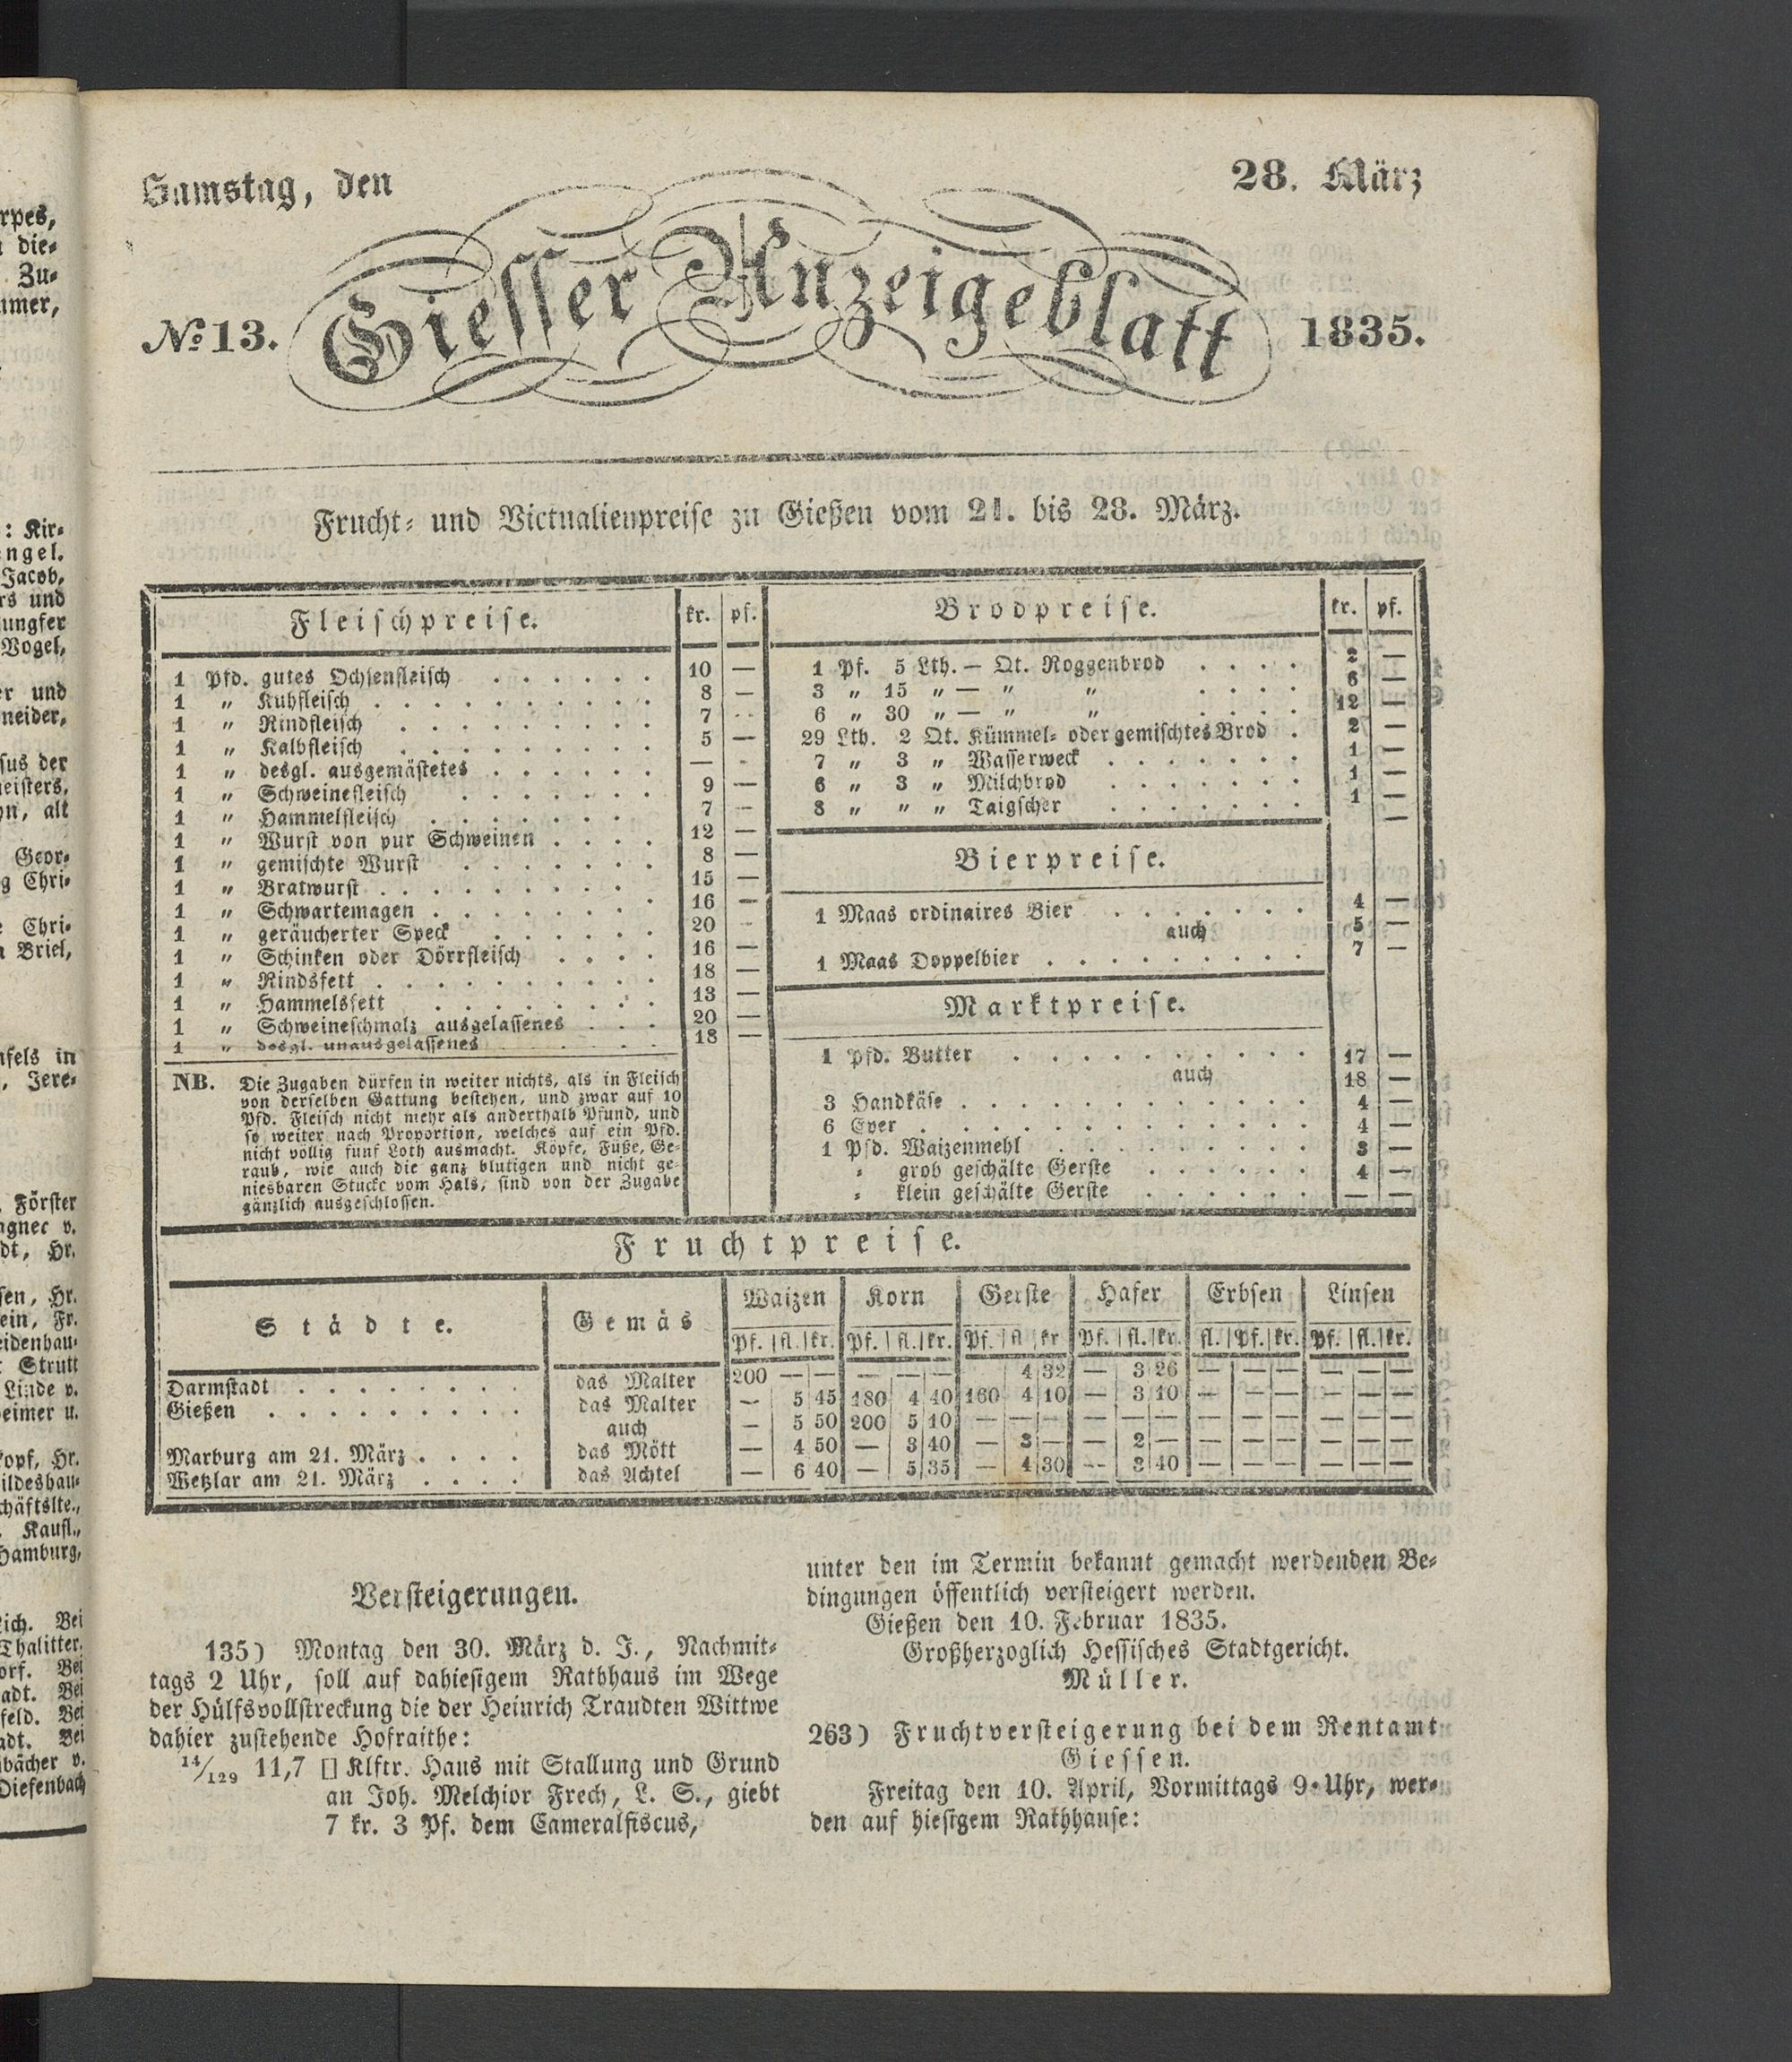 Samstag, den
28. März
No 13.
Giesser Anzeigeblatt
1835.
Frucht- und Victualienpreise zu Gießen vom 21. bis 28. März.
Fleischpreise. kr. pf.
1 Pfd. gutes Ochsenfleisch . . . . . . 10 —
1 „ Kuhfleisch . . . . . . . . . . 8 —
1 „ Rindfleisch . . . . . . . . . 7 —
1 „ Kalbfleisch . . . . . . . . . 5 —
1 „ desgl. ausgemästetes . . . . . . — -
1 „ Schweinefleisch . . . . . . . 9 —
1 „ Hammelfleisch . . . . . . . 7 -
1 „ Wurst von pur Schweinen . . . . 12 —
1 „ gemischte Wurst . . . . . . . 8 —
1 „ Bratwurst . . . . . . . . . 15 —
1 „ Schwartemagen . . . . . . . . 16 —
1 „ geräucherter Speck . . . . . . 20 -
1 „ Schinken oder Dörrfleisch . . . . 16 —
1 „ Rindsfett . . . . . . . . . . 18 —
1 „ Hammelsfett . . . . . . . . 13 —
1 „ Schweineschmalz ausgelassenes . . . 20 —
1 „ desgl. unausgelassenes . . . . . 18 —
NB. Die Zugaben dürfen in weiter nichts, als in Fleisch
von derselben Gattung bestehen, und zwar auf 10
Pfd. Fleisch nicht mehr als anderthalb Pfund, und
so weiter nach Proportion, welches auf ein Pfd.
nicht völlig fünf Loth ausmacht. Köpfe, Füße, Ge-
raub, wie auch die ganz blutigen und nicht ge-
niesbaren Stücke vom Hals, sind von der Zugabe
gänzlich ausgeschlossen.
Brodpreise. kr. pf.
1 Pf. 5 Lth. — Qt. Roggenbrod . . . . 2 —
3 „ 15 „ — „ „ . . . . 6 —
6 „ 30 „ — „ „ . . . . 12 —
29 Lth. 2 Qt. Kümmel- oder gemischtes Brod . 2 —
7 „ 3 „ Wasserweck . . . . . . . 1 —
6 „ 3 „ Milchbrod . . . . . . . 1 —
8 „ „ „ Taigscher . . . . . . . 1 —
—
Bierpreise.
1 Maas ordinaires Bier . . . . . . . 4 —
auch 5 —
1 Maas Doppelbier . . . . . . . . . 7 —
Marktpreise.
1 Pfd. Butter . . . . . . . . . . 17 —
auch 18 —
3 Handkäse . . . . . . . . . . . . 4 —
6 Eyer . . . . . . . . . . . . . 4 —
1 Pfd. Waizenmehl . . . . . . . . . 3 —
„ grob geschälte Gerste . . . . . . 4 —
„ klein geschälte Gerste . . . . . . — —
Fruchtpreise.
Städte. Gemäs Waizen Korn Gerste Hafer Erbsen Linsen
Pf. fl. kr. Pf. fl. kr. Pf. fl kr Pf. fl. kr. fl. Pf. kr. Pf. fl. kr.
Darmstadt . . . . . . . . das Malter 200 — — — — — 4 32 — 3 26 — — — — — —
Gießen . . . . . . . . . das Malter — 5 45 180 4 40 160 4 10 — 3 10 — — — — — —
auch — 5 50 200 5 10 — — — — — — — — — — — —
Marburg am 21. März . . . . das Mött — 4 50 — 3 40 — 3 — — 2 — — — — — — —
Wetzlar am 21. März . . . . das Achtel — 6 40 — 5 35 — 4 30 — 3 40 — — — — — —
Versteigerungen.
135) Montag den 30. März d. J., Nachmit-
tags 2 Uhr, soll auf dahiesigem Rathhaus im Wege
der Hülfsvollstreckung die der Heinrich Traudten Wittwe
dahier zustehende Hofraithe:
14/129 11,7 [] Klftr. Haus mit Stallung und Grund
an Joh. Melchior Frech, L. S., giebt
7 kr. 3 Pf. dem Cameralfiscus,
unter den im Termin bekannt gemacht werdenden Be-
dingungen öffentlich versteigert werden.
Gießen den 10. Februar 1835.
Großherzoglich Hessisches Stadtgericht.
Müller.
263) Fruchtversteigerung bei dem Rentamt
Giessen.
Freitag den 10. April, Vormittags 9 Uhr, wer-
den auf hiesigem Rathhause: